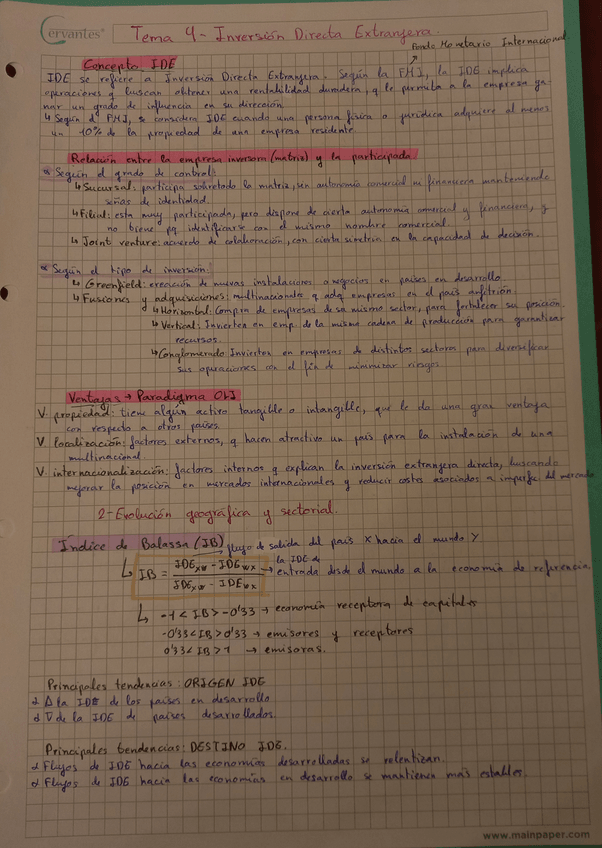 Cervantes
Tema 4 - Inversión Directa Extranjera.
Fondo Monetario Internacional.
Concepto IDE
IDE se refiere a Inversión Directa Extranjera. Según la FMI, la IDE implica
operaciones q buscan obtener una rentabilidad duradera, q le permita a la empresa ga
nar un grado de influencia en su dirección.
↳ Según el FMI, se considera IDE cuando una persona física o jurídica adquiere al menos
un 10% de la propiedad de una empresa residente.
Relación entre la empresa inversora (matriz) y la participada.
Según el grado de control:
↳ Sucursal: participa sobretodo la matriz, sin autonomía comercial ni financiera manteniendo
señas de identidad.
↳ Filial: esta muy participada, pero dispone de cierta autonomía comercial y financiera, y
no tiene pq identificarse con el mismo nombre comercial.
↳ Joint venture: acuerdo de colaboración, con cierta simetría en la capacidad de decisión.
Según el tipo de inversión:
↳ Greenfield: creación de nuevas instalaciones o negocios en países en desarrollo.
↳ Fusiones y adquisiciones: multinacionales q adq empresas en el país anfitrión.
↳ Horizontal: Compra de empresas de su mismo sector, para fortalecer su posición.
↳ Vertical: Invierten en emp. de la misma cadena de producción para garantizar
recursos.
↳ Conglomerado: Invierten en empresas de distintos sectores para diversificar
sus operaciones con el fin de minimizar riesgos
Ventajas → Paradigma OLI
V. propiedad: tiene algún activo tangible o intangible, que le da una gran ventaja
con respecto a otros países.
V localización: factores externos, q hacen atractivo un país para la instalación de una
multinacional.
V internacionalización: factores internos q explican la inversión extranjera directa, buscando
mejorar la posición en mercados internacionales y reducir costes asociados a imperfec del mercado
2 - Evolución geográfica y sectorial.
Índice de Balassa (IB) flujo de salida del país X hacia el mundo Y
↳ IB = (IDExw - IDEwx) / (IDExw - IDEwx) → la IDE de
entrada desde el mundo a la economía de referencia.
↳ -1 < IB > -0'33 → economía receptora de capitales
-0'33 < IB > 0'33 → emisores y receptores
0'33 < IB > 1 → emisoras.
Principales tendencias: ORIGEN IDE
Δ la IDE de los países en desarrollo
∇ de la IDE de países desarrollados.
Principales tendencias: DESTINO IDE.
Flujos de IDE hacia las economías desarrolladas se relentizan.
Flujos de IDE hacia las economías en desarrollo se mantienen más estables.
www.mainpaper.com